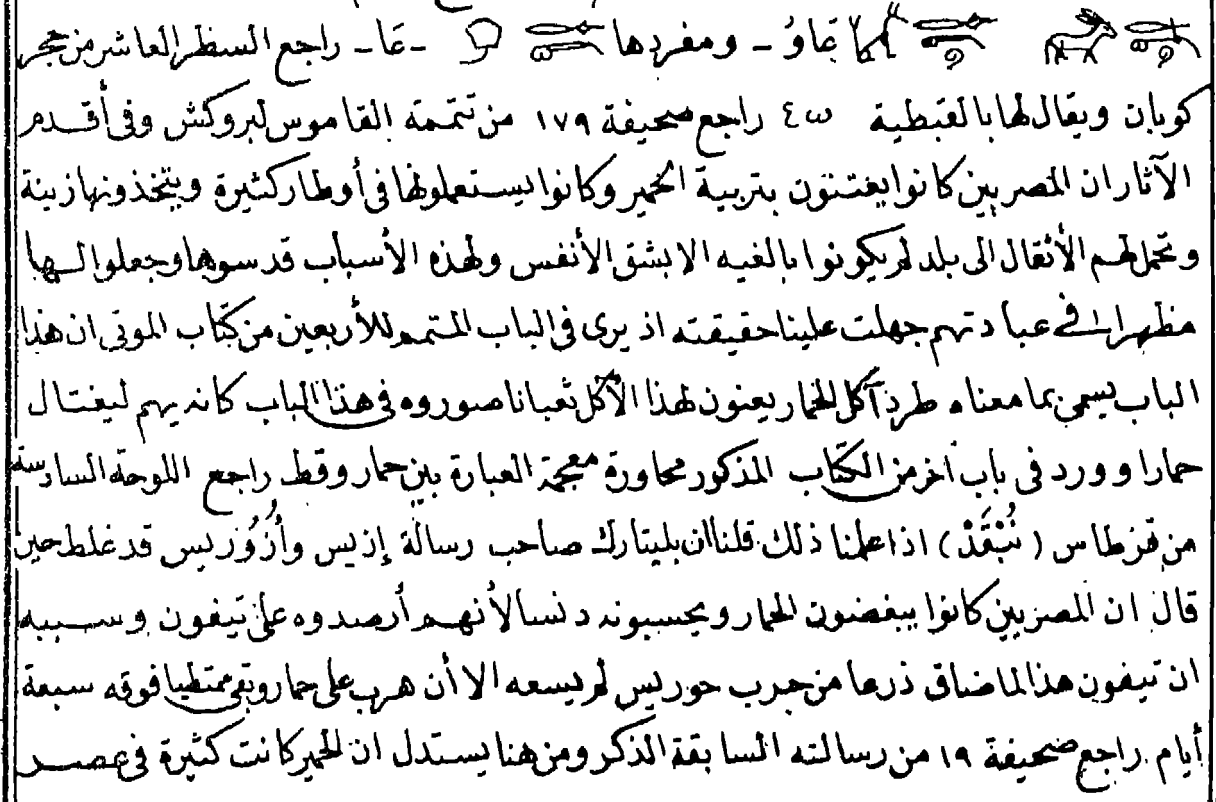 عَاوُ - ومفردها - عَا - راجع السطر العاشر من حجر
كوبان ويقال لها بالقبطية ⲉⲱ راجع صحيفة ١٧٩ من تتمة القاموس لبروكش وفى أقدم
الآثار ان المصريين كانوا يعتنون بتربية الحمير وكانوا يستعملونها فى أوطار كثيرة ويتخذونها زينة
وتحمل لهم الأثقال الى بلد لم يكونوا بالغيه الا بشق الأنفس ولهذه الأسباب قدسوها وجعلوا لها
مظهرا فى عبادتهم جهلت علينا حقيقته اذ يرى فى الباب المتمم للأربعين من كتاب الموتى ان هذا
الباب يسمى بما معناه طرد آكل الحمار يعنون لهذا الآكل ثعبانا صوروه فى هذا الباب كانه يهم ليغتال
حمارا وورد فى باب آخر من الكتاب المذكور محاورة معجمة العبارة بين حمار وقط راجع اللوحة السادسة
من قرطاس ( نُبْقَدْ ) اذا علمنا ذلك قلنا ان بليتارك صاحب رسالة إزيس وأُزُوُريس قد غلط حين
قال ان المصريين كانوا يبغضون الحمار ويحسبونه دنسا لأنهم أرصدوه على تيفون وسببه
ان تيفون هذا لما ضاق ذرعا من حرب حوريس لم يسعه الا أن هرب على حمار وبقى ممتطيا فوقه سبعة
أيام راجع صحيفة ١٩ من رسالته السابقة الذكر ومن هنا يستدل ان الحمير كانت كثيرة فى عصر